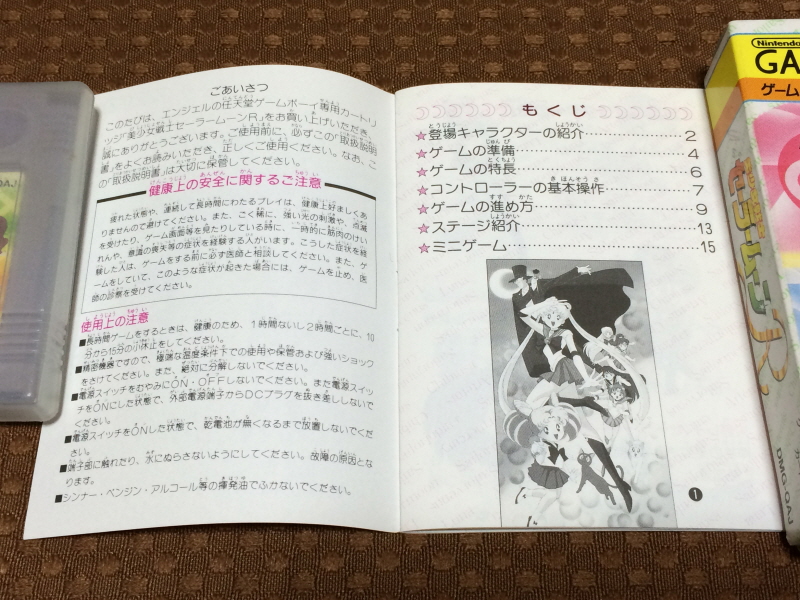 ごあいさつ
このたびは、エンジェルの任天堂ゲームボーイ専用カートリ
ッジ"美少女戦士セーラームーンR"をお買い上げいただき、
誠にありがとうございます。ご使用前に、必ずこの「取扱説明
書」をよくお読みいただき、正しくご使用ください。なお、こ
の「取扱説明書」は大切に保管してください。
健康上の安全に関するご注意
疲れた状態や、連続して長時間にわたるプレイは、健康上好ましくあ
りませんので避けてください。また、ごく稀に、強い光の刺激や、点滅
を受けたり、ゲーム画面等を見たりしている時に、一時的に筋肉のけい
れんや、意識の喪失等の症状を経験する人がいます。こうした症状を経
験した人は、ゲームをする前に必ず医師と相談してください。また、ゲ
ームをしていて、このような症状が起きた場合には、ゲームを止め、医
師の診察を受けてください。
使用上の注意
■長時間ゲームをするときは、健康のため、1時間ないし2時間ごとに、10
分から15分の小休止をしてください。
■精密機器ですので、極端な温度条件下での使用や保管および強いショック
をさけてください。また、絶対に分解しないでください。
■電源スイッチをむやみにON・OFFしないでください。また電源スイッ
チをONにした状態で、外部電源端子からDCプラグを抜き差ししないで
ください。
■電源スイッチをONした状態で、乾電池が無くなるまで放置しないでくだ
さい。
■端子部に触れたり、水にぬらさないようにしてください。故障の原因とな
ります。
■シンナー・ベンジン・アルコール等の揮発油でふかないでください。
もくじ
★登場キャラクターの紹介……………2
★ゲームの準備……………4
★ゲームの特長……………6
★コントローラーの基本操作……………7
★ゲームの進め方……………9
★ステージ紹介……………13
★ミニゲーム……………15
1
Nintendo
GA
ゲーム
セーラームーン
R
DMG-QAJ